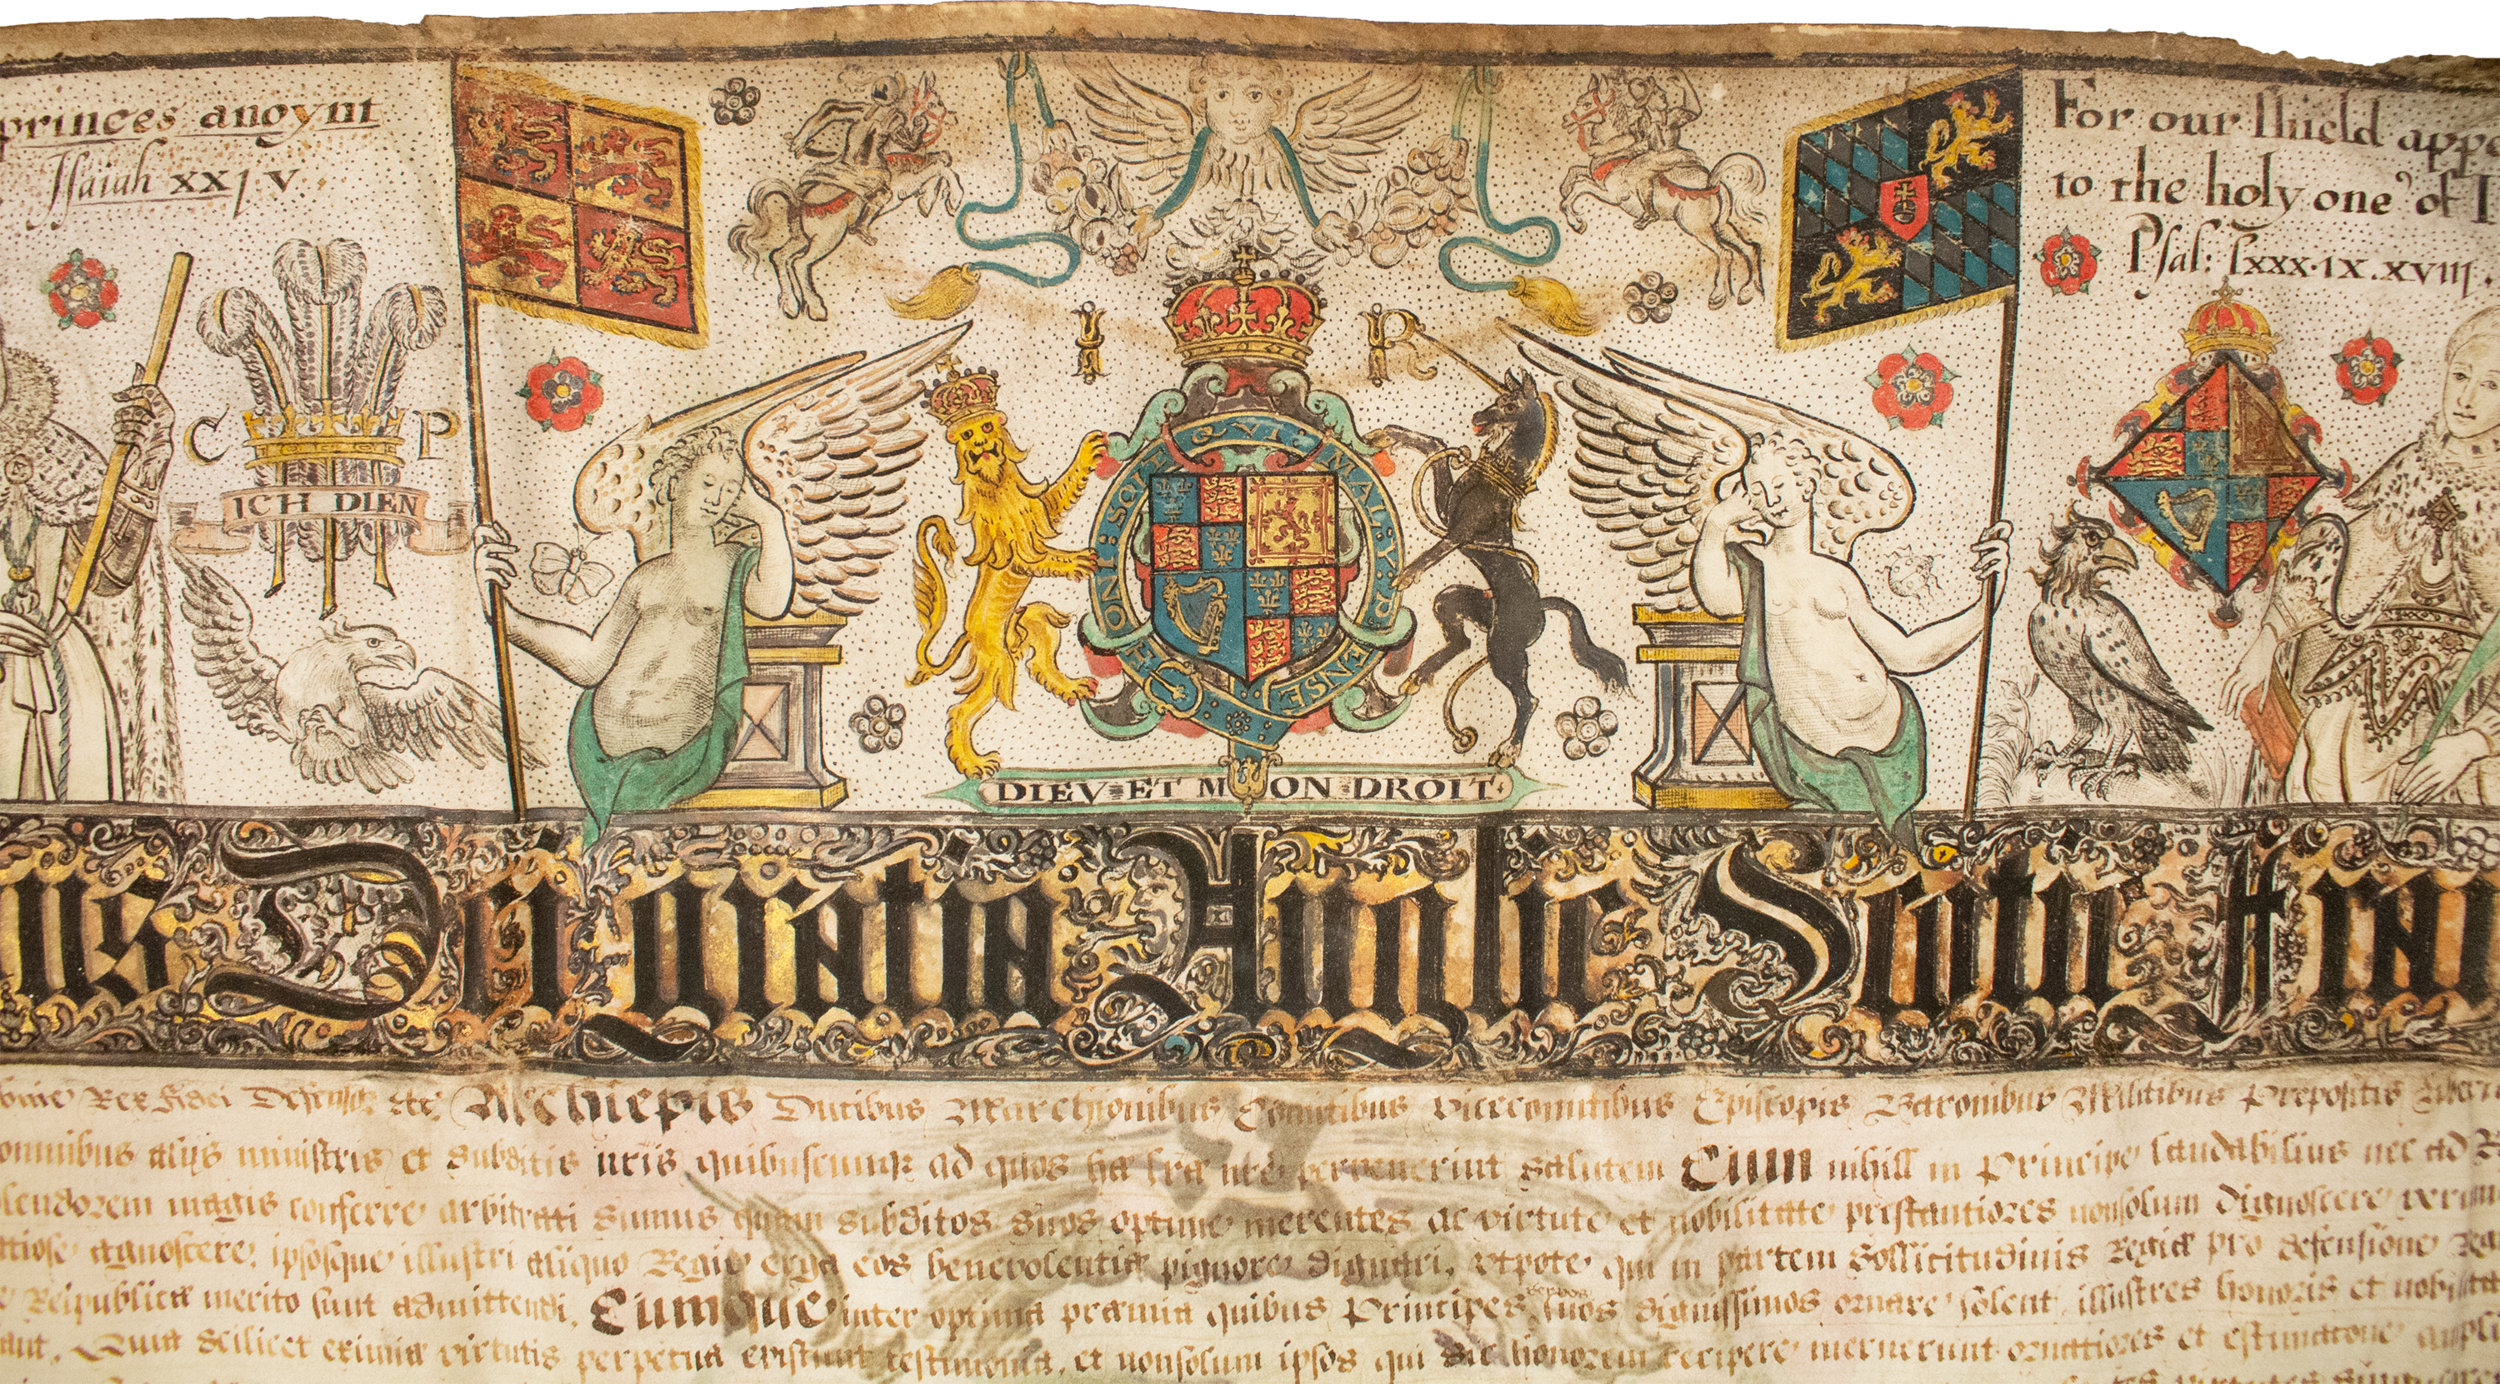 princes anoynt
Isaiah xxj v.
For our shield appe
to the holy one of I
Psal: lxxx.ix.xviij.
C P
ICH DIEN
I R
HONI: SOIT Q VI MAL Y: P ENSE
DIEV ET MON DROIT
us Dei gratia Anglie Scotie Fran
Rex fidei Defensor &c Archiepis Ducibus Marchionibus Comitibus Vicecomitibus Episcopis Baronibus Militibus Prepositis
omnibus alijs ministris et subditis nris quibuscumque ad quos hae lrae nre pervenerint salutem Cum nihill in Principe laudabilius nec ad
lendorem magis conferre arbitrati sumus quam subditos suos optime merentes ac virtute et nobilitate prestantiores nonsolum dignoscere verum
agnoscere, ipsosque illustri aliquo Regie erga eos benevolentiae pignore dignari, vtpote qui in partem sollicitudinis Regiae pro defensione
Reipublicae merito sunt admittendi. Cumque inter optima praemia quibus Principes suos dignissimos ornare solent, illustres honoris et
Quia scilicet eximiae virtutis perpetua existunt testimonia, et nonsolum ipsos qui honorem recipere meruerunt ornatiores et